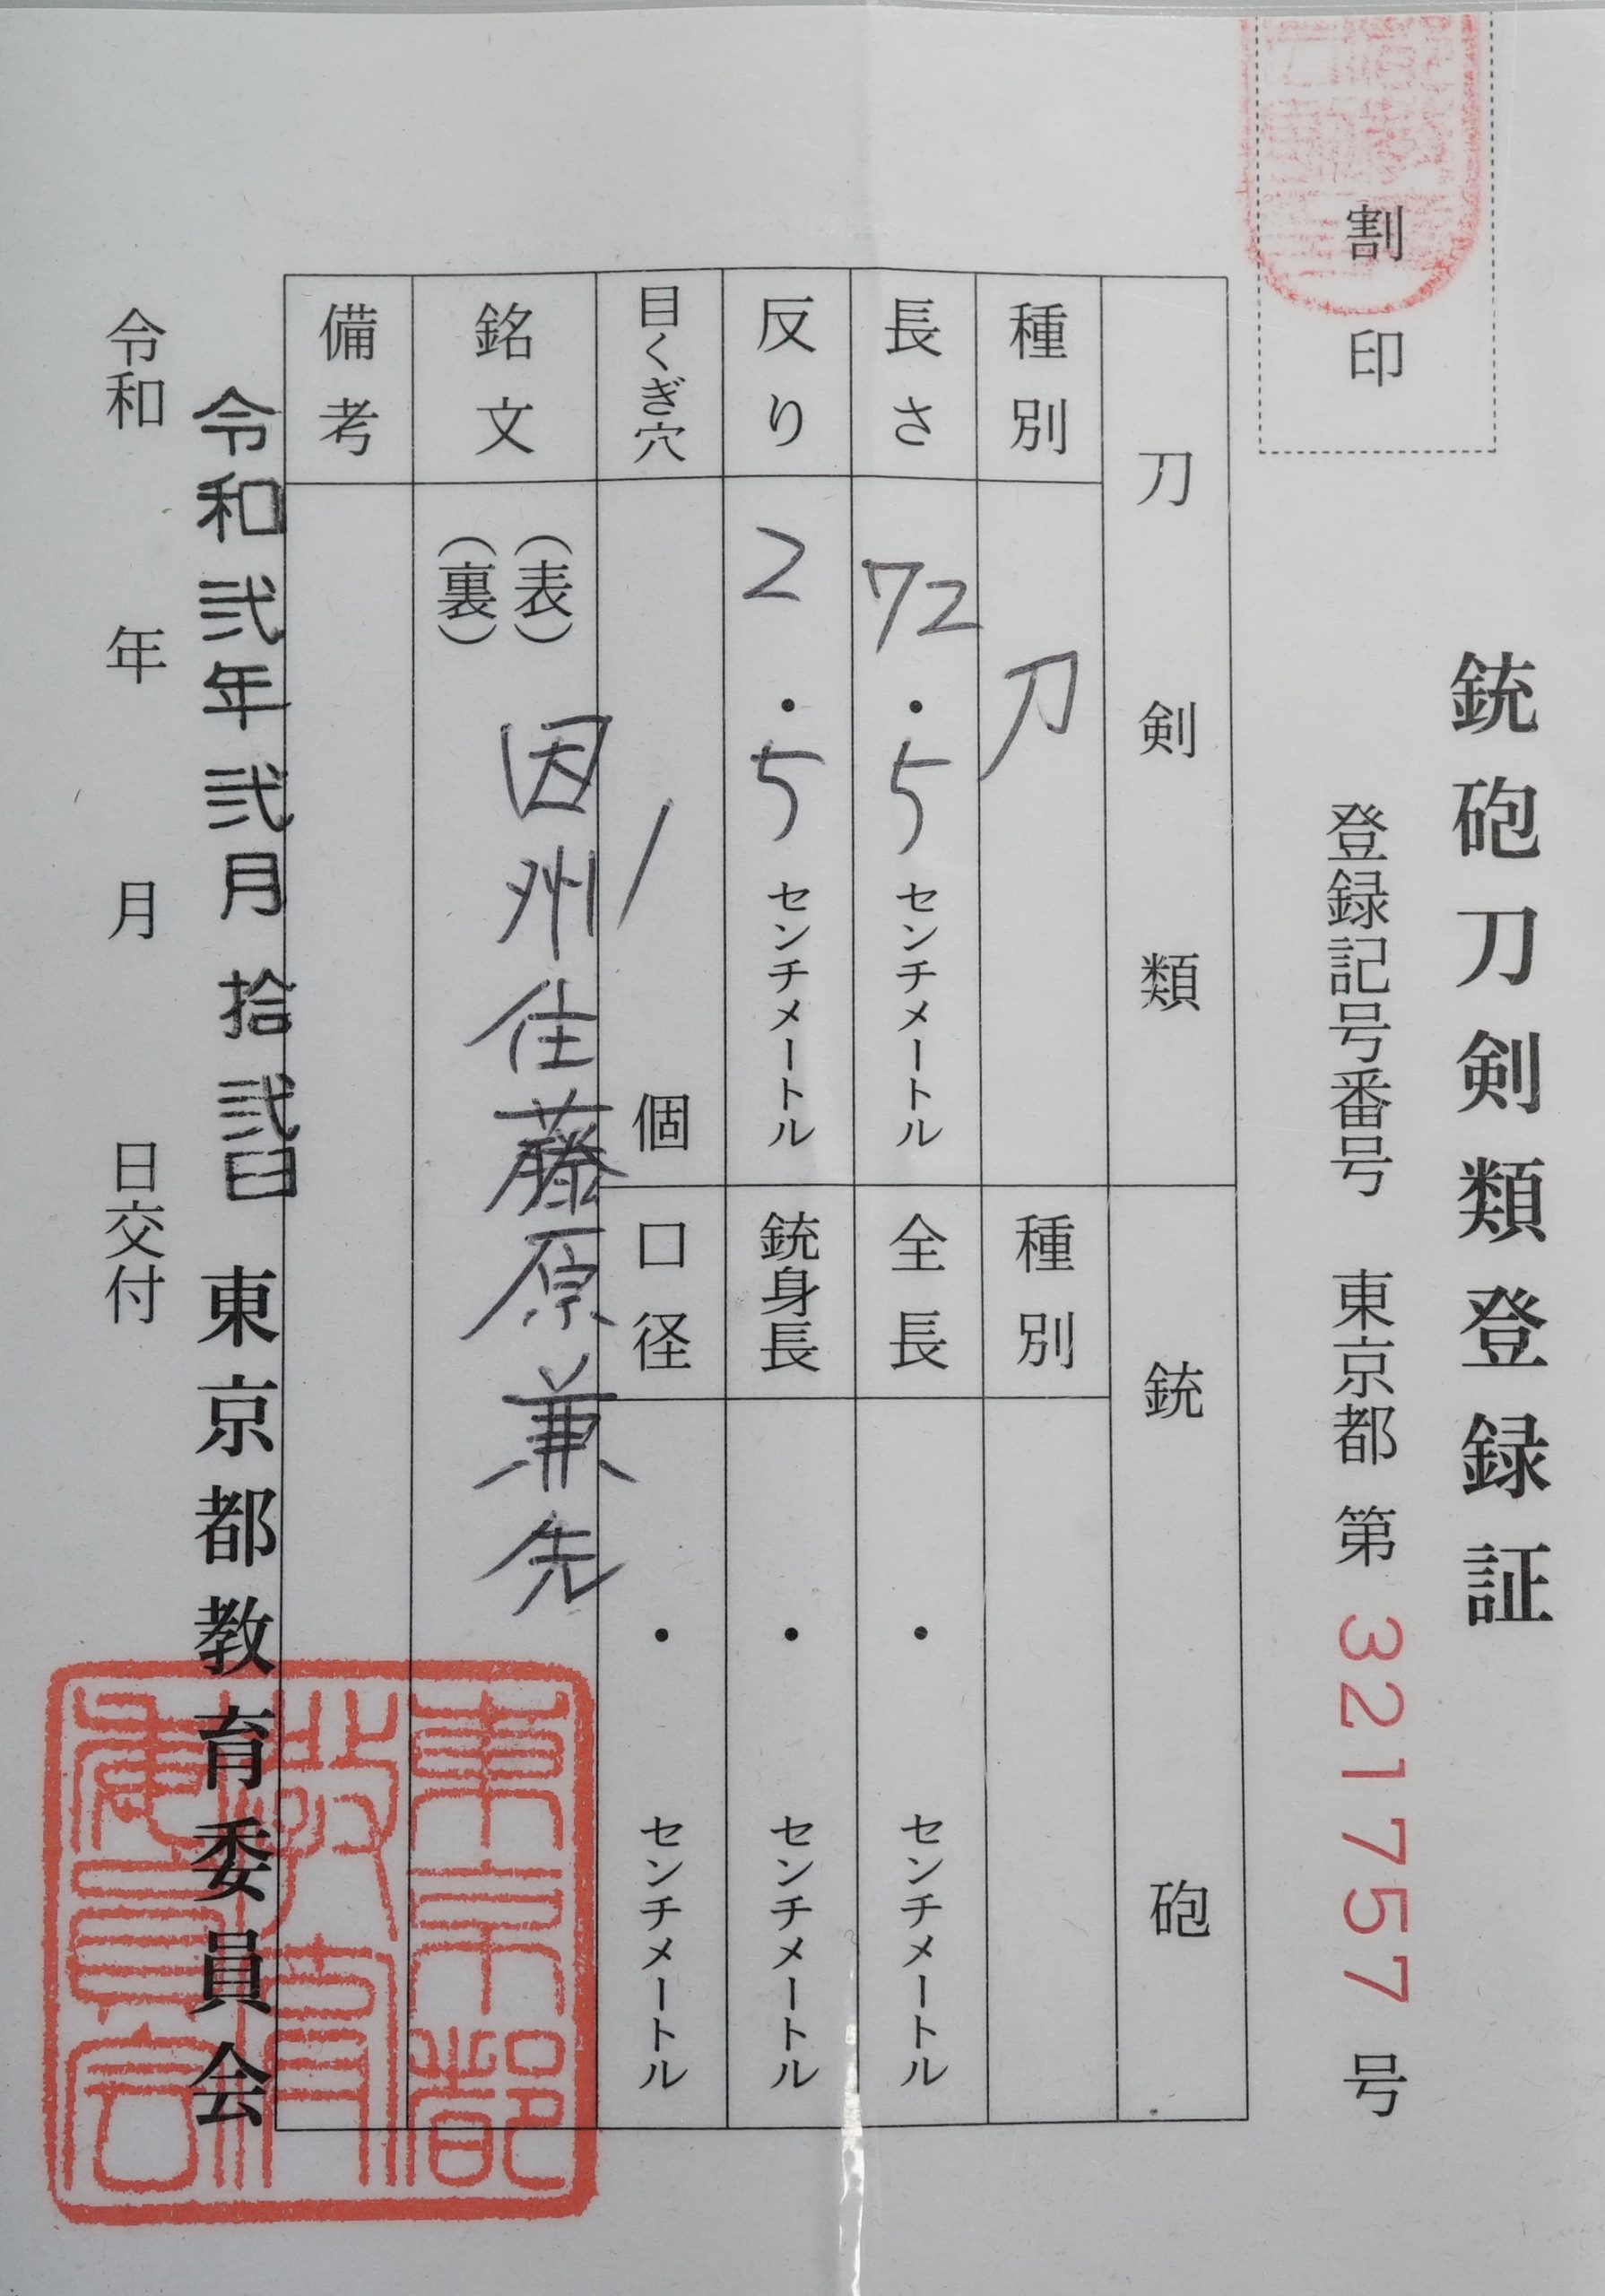 割印
銃砲刀剣類登録証
登録記号番号 東京都 第 321757 号
刀剣類
銃砲
種別 刀
種別
長さ 72.5 センチメートル
全長 . センチメートル
反り 2.5 センチメートル
銃身長 . センチメートル
目くぎ穴 1 個
口径 . センチメートル
銘文 (表) 因州住藤原兼先
(裏)
備考
令和弐年弐月拾弐日 東京都教育委員会
令和 年 月 日交付
東京都
教育
委員会